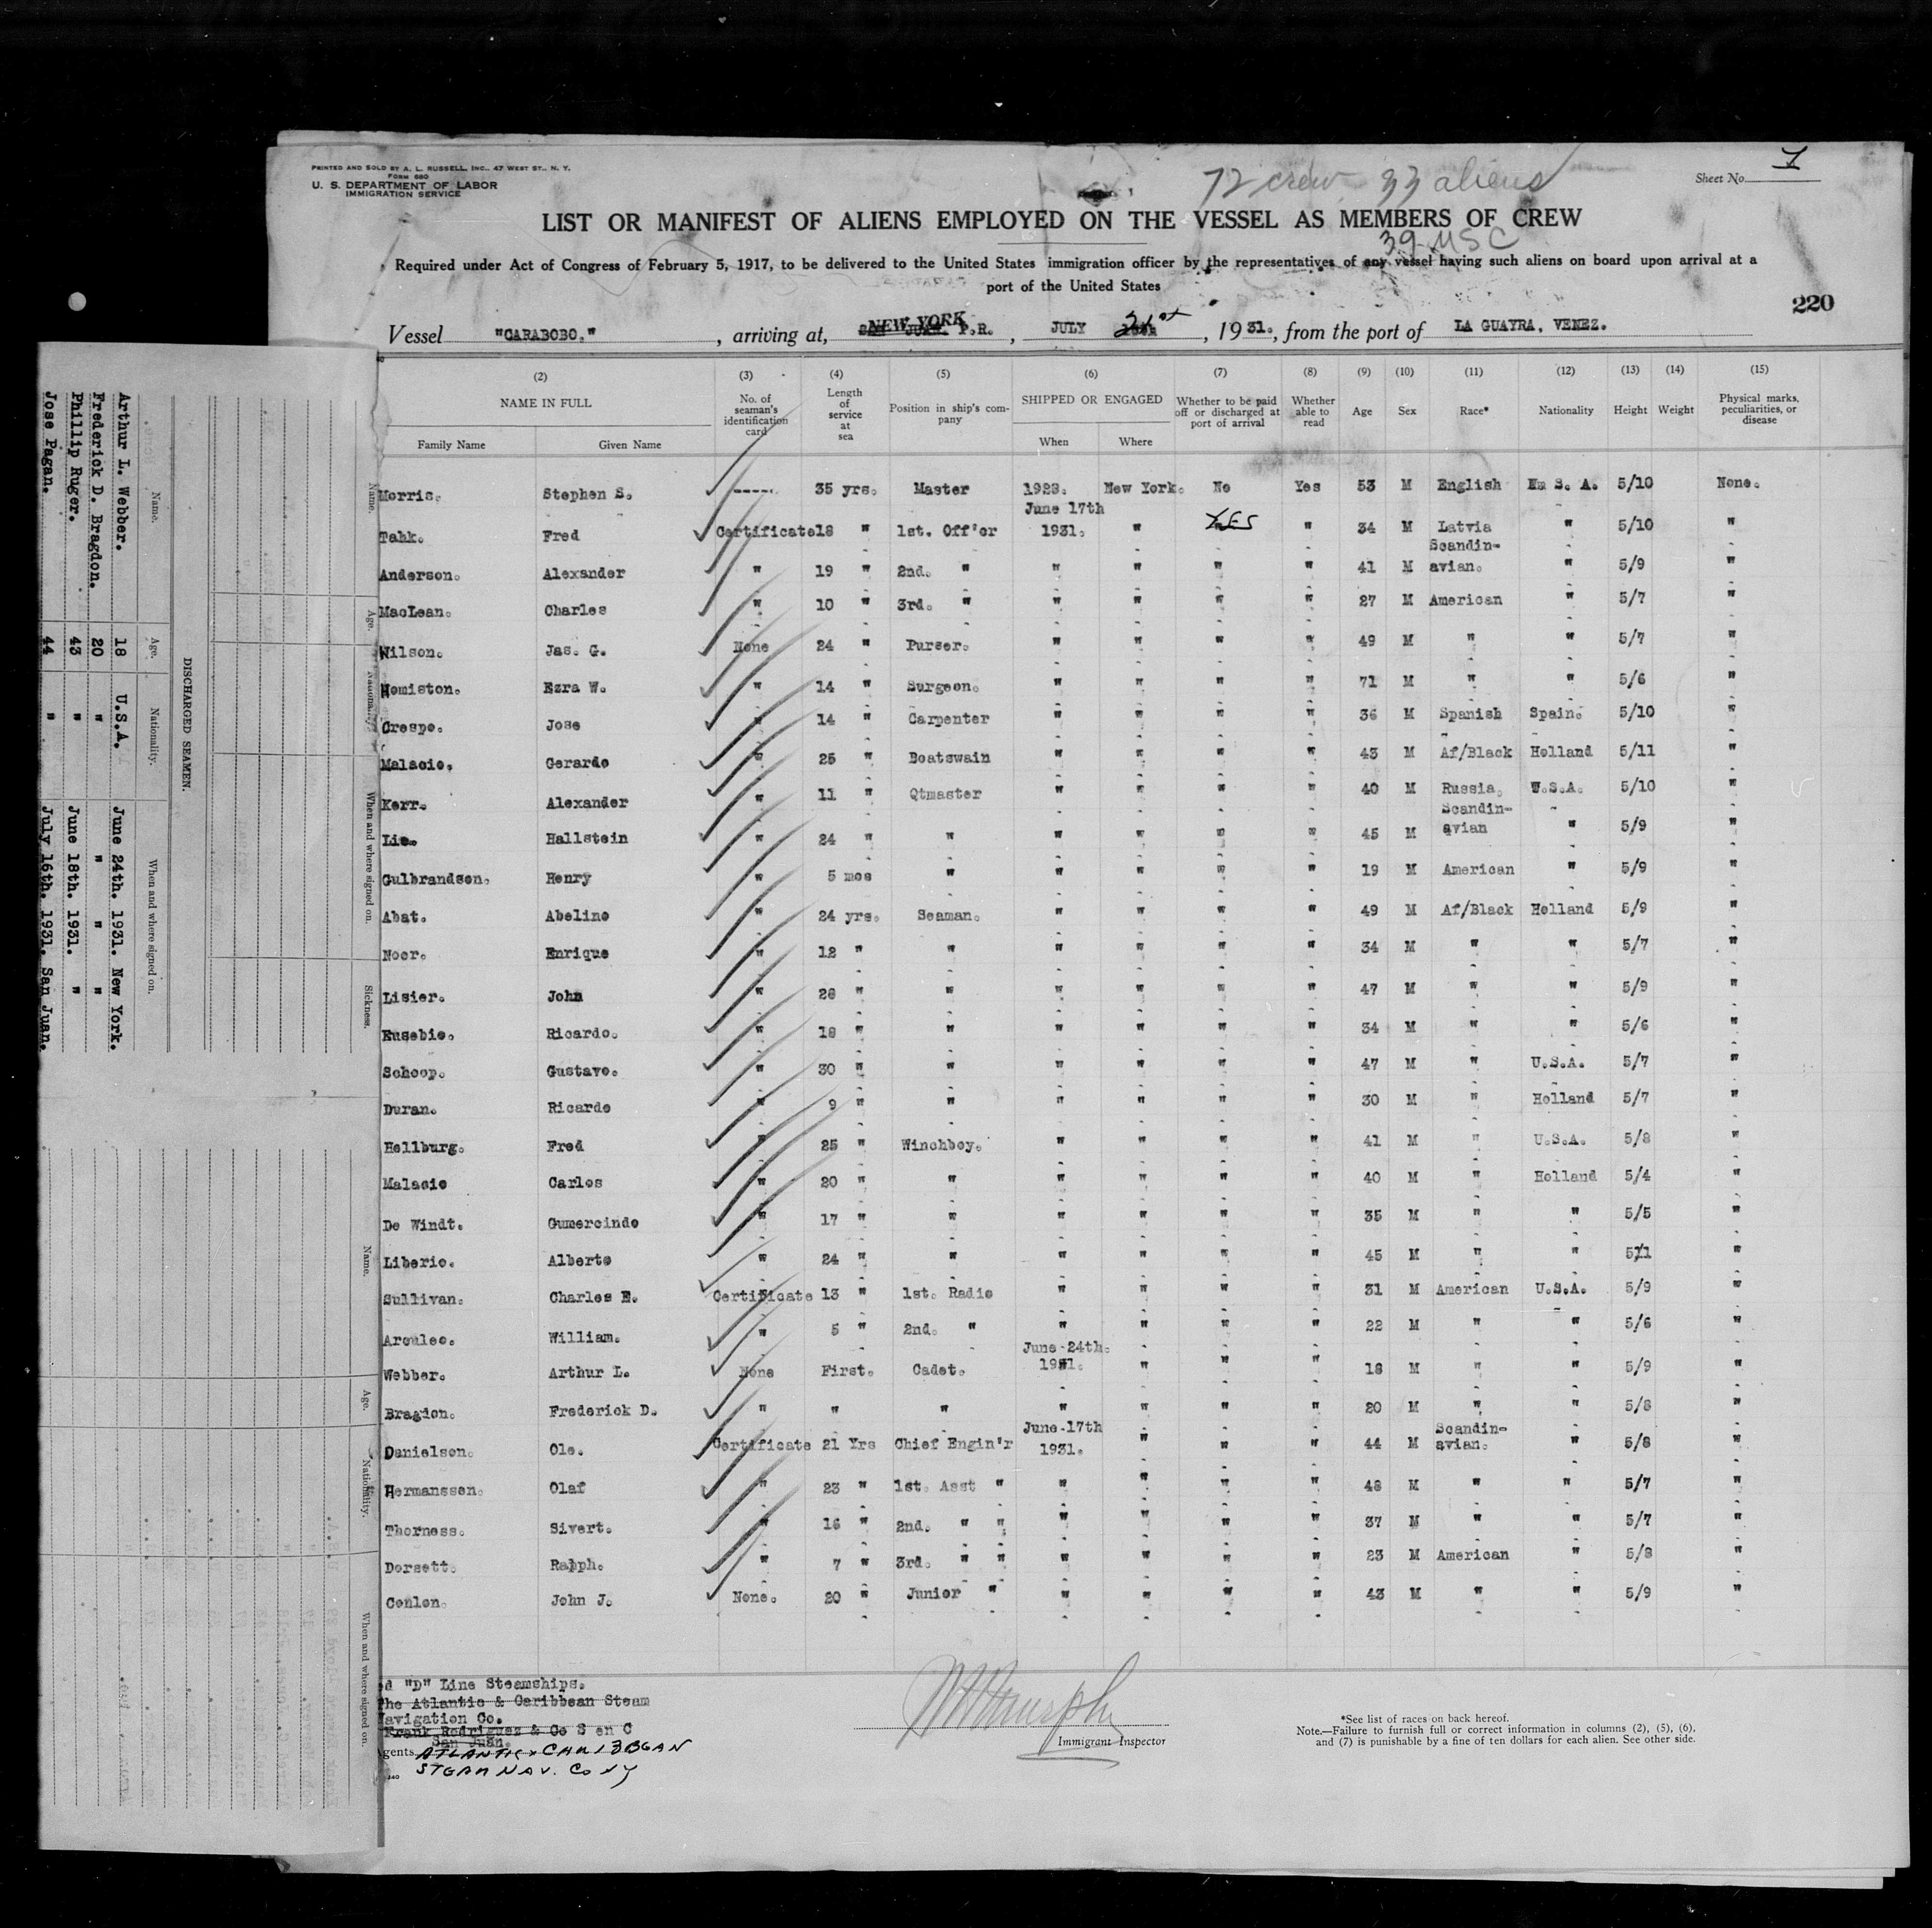 PRINTED AND SOLD BY A. L. RUSSELL, INC., 47 WEST ST., N. Y.
FORM 680
U. S. DEPARTMENT OF LABOR
IMMIGRATION SERVICE
72 crew 33 aliens
Sheet No. 1
LIST OR MANIFEST OF ALIENS EMPLOYED ON THE VESSEL AS MEMBERS OF CREW
39 USC
Required under Act of Congress of February 5, 1917, to be delivered to the United States immigration officer by the representatives of any vessel having such aliens on board upon arrival at a
port of the United States
220
Vessel "CARABOBO." , arriving at, NEW YORK P.R. , JULY 21st , 19 31., from the port of LA GUAYRA, VENEZ.
(2) (3) (4) (5) (6) (7) (8) (9) (10) (11) (12) (13) (14) (15)
NAME IN FULL No. of seaman's identification card Length of service at sea Position in ship's company SHIPPED OR ENGAGED Whether to be paid off or discharged at port of arrival Whether able to read Age Sex Race* Nationality Height Weight Physical marks, peculiarities, or disease
Family Name Given Name When Where
Morris. Stephen S. ----- 35 yrs. Master 1923. New York. No Yes 53 M English U. S. A. 5/10 None.
June 17th
Tahk. Fred Certificate 18 " 1st. Off'cr 1931. " YES " 34 M Latvia " 5/10 "
Scandin-
Anderson. Alexander " 19 " 2nd. " " " " " 41 M avian. " 5/9 "
MacLean. Charles " 10 " 3rd. " " " " " 27 M American " 5/7 "
Wilson. Jas. G. None 24 " Purser. " " " " 49 M " " 5/7 "
Homiston. Ezra W. " 14 " Surgeon. " " " " 71 M " " 5/6 "
Crespo. Jose " 14 " Carpenter " " " " 36 M Spanish Spain. 5/10 "
Malacio. Gerardo " 25 " Boatswain " " " " 43 M Af/Black Holland 5/11 "
Kerr. Alexander " 11 " Qtmaster " " " " 40 M Russia. U.S.A. 5/10 "
Scandin-
Lie. Hallstein " 24 " " " " " " 45 M avian " 5/9 "
Gulbrandson. Henry " 5 mos " " " " " 19 M American " 5/9 "
Abat. Abelino " 24 yrs. Seaman. " " " " 49 M Af/Black Holland 5/9 "
Noor. Enrique " 12 " " " " " " 34 M " " 5/7 "
Lisier. John " 28 " " " " " " 47 M " " 5/9 "
Eusebio. Ricardo. " 18 " " " " " " 34 M " " 5/6 "
Schoop. Gustavo. " 30 " " " " " " 47 M " U.S.A. 5/7 "
Duran. Ricardo " 9 " " " " " " 30 M " Holland 5/7 "
Hellburg. Fred " 25 " Winchboy. " " " " 41 M " U.S.A. 5/8 "
Malacio Carlos " 20 " " " " " " 40 M " Holland 5/4 "
De Windt. Gumercindo " 17 " " " " " " 35 M " " 5/5 "
Liberio. Alberto " 24 " " " " " " 45 M " " 5/11 "
Sullivan. Charles E. Certificate 13 " 1st. Radio " " " " 31 M American U.S.A. 5/9 "
Arculeo. William. " 5 " 2nd. " " " " " 22 M " " 5/6 "
June 24th.
Webber. Arthur L. None First. Cadet. 1931. " " " 18 M " " 5/9 "
Bragdon. Frederick D. " " " " " " " 20 M " " 5/8 "
June 17th Scandin-
Danielson. Ole. Certificate 21 Yrs Chief Engin'r 1931. " " " 44 M avian. " 5/8 "
Hermanssen. Olaf " 23 " 1st. Asst " " " " " 48 M " " 5/7 "
Thorness. Sivert. " 16 " 2nd. " " " " " " 37 M " " 5/7 "
Dorsett. Ralph. " 7 " 3rd. " " " " " " 23 M American " 5/8 "
Conlon. John J. None. 20 " Junior " " " " " 43 M " " 5/9 "
d "D" Line Steamships.
The Atlantic & Caribbean Steam
Navigation Co.
Frank Rodriguez & Co S en C
San Juan.
Agents ATLANTIC & CARIBBEAN
STEAM NAV. Co NY
Immigrant Inspector
*See list of races on back hereof.
Note.—Failure to furnish full or correct information in columns (2), (5), (6),
and (7) is punishable by a fine of ten dollars for each alien. See other side.
DISCHARGED SEAMEN.
Name. Age. Nationality. When and where signed on.
Arthur L. Webber. 18 U.S.A. June 24th. 1931. New York.
Frederick D. Bragdon. 20 " " " "
Phillip Ruger. 43 " June 18th. 1931. "
Jose Pagan. 44 " July 16th. 1931. San Juan.
Name. Age. Nationality. When and where signed on. Sickness.
Name. Age. Nationality. When and where signed on.